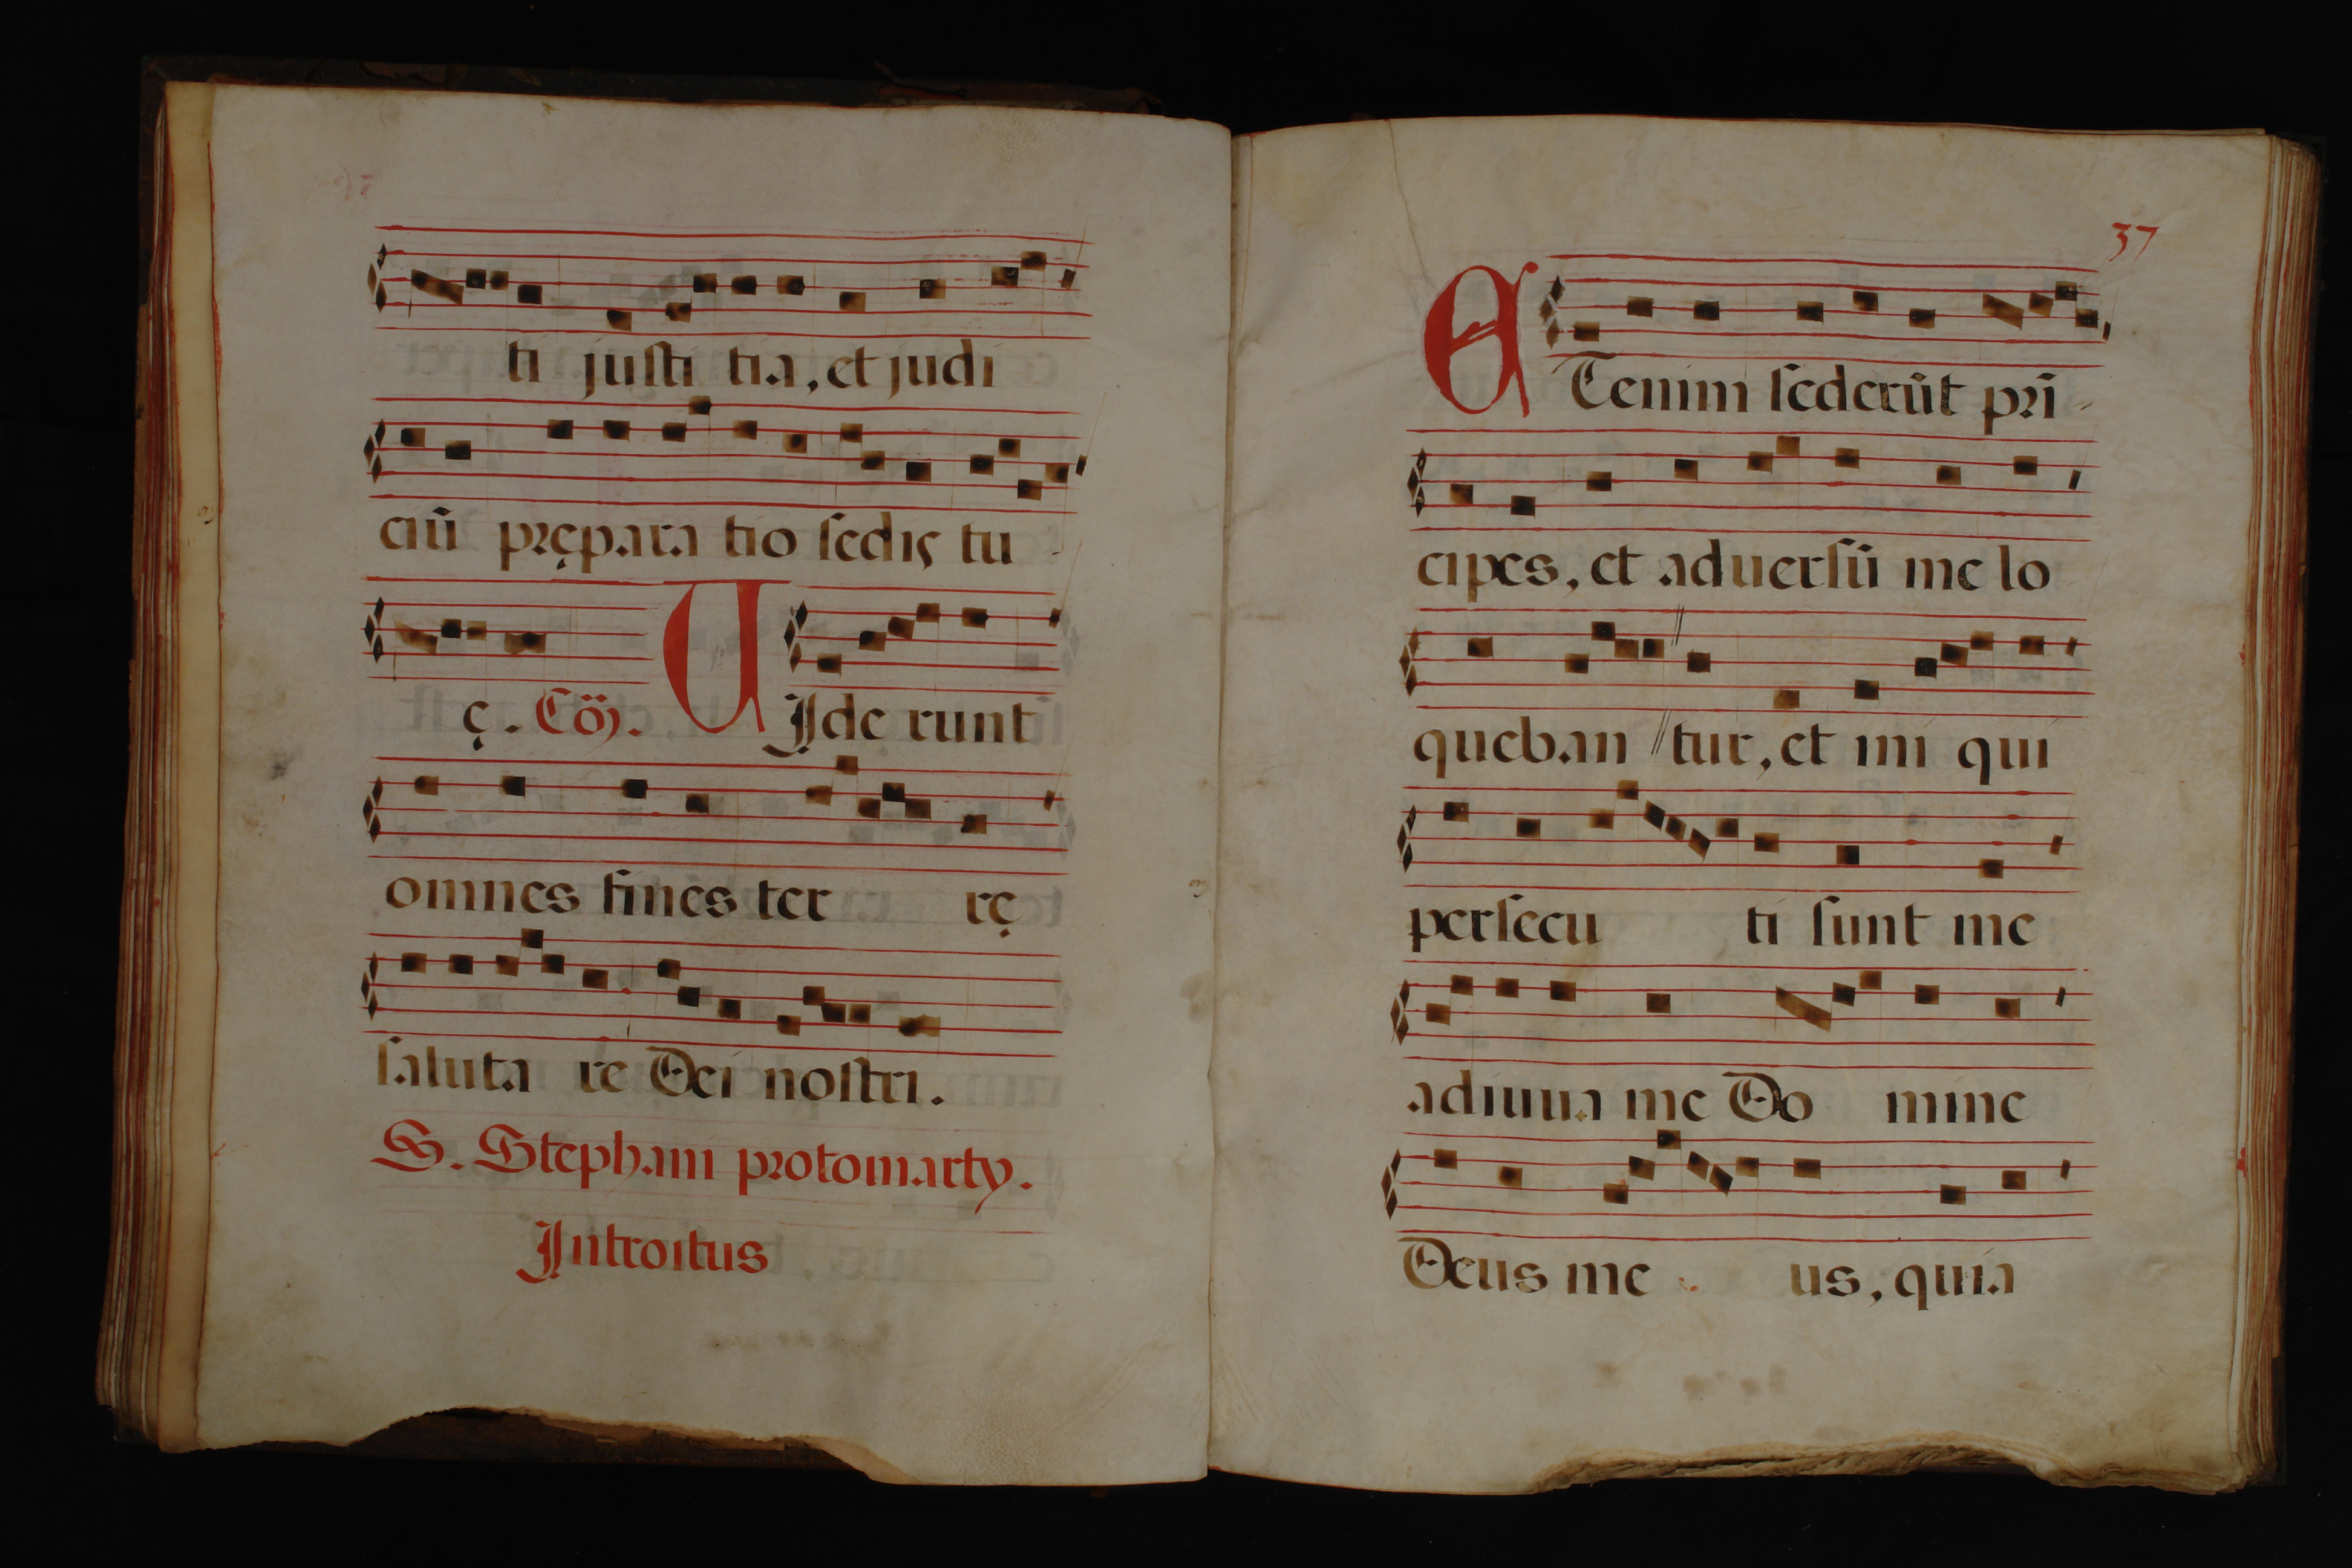 ti justi tia, et judi
ciū prępara tio sedis tu
ę. Cōm̄. VIde runt
omnes fines ter rę
saluta re Dei nostri.
S. Stephani protomarty.
Introitus
37
ETenim sederūt pri
cipes, et aduersū me lo
queban // tur, et ini qui
persecu ti sunt me
adiuua me Do mine
Deus me us, quia